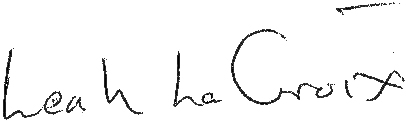 Leah LaCroix